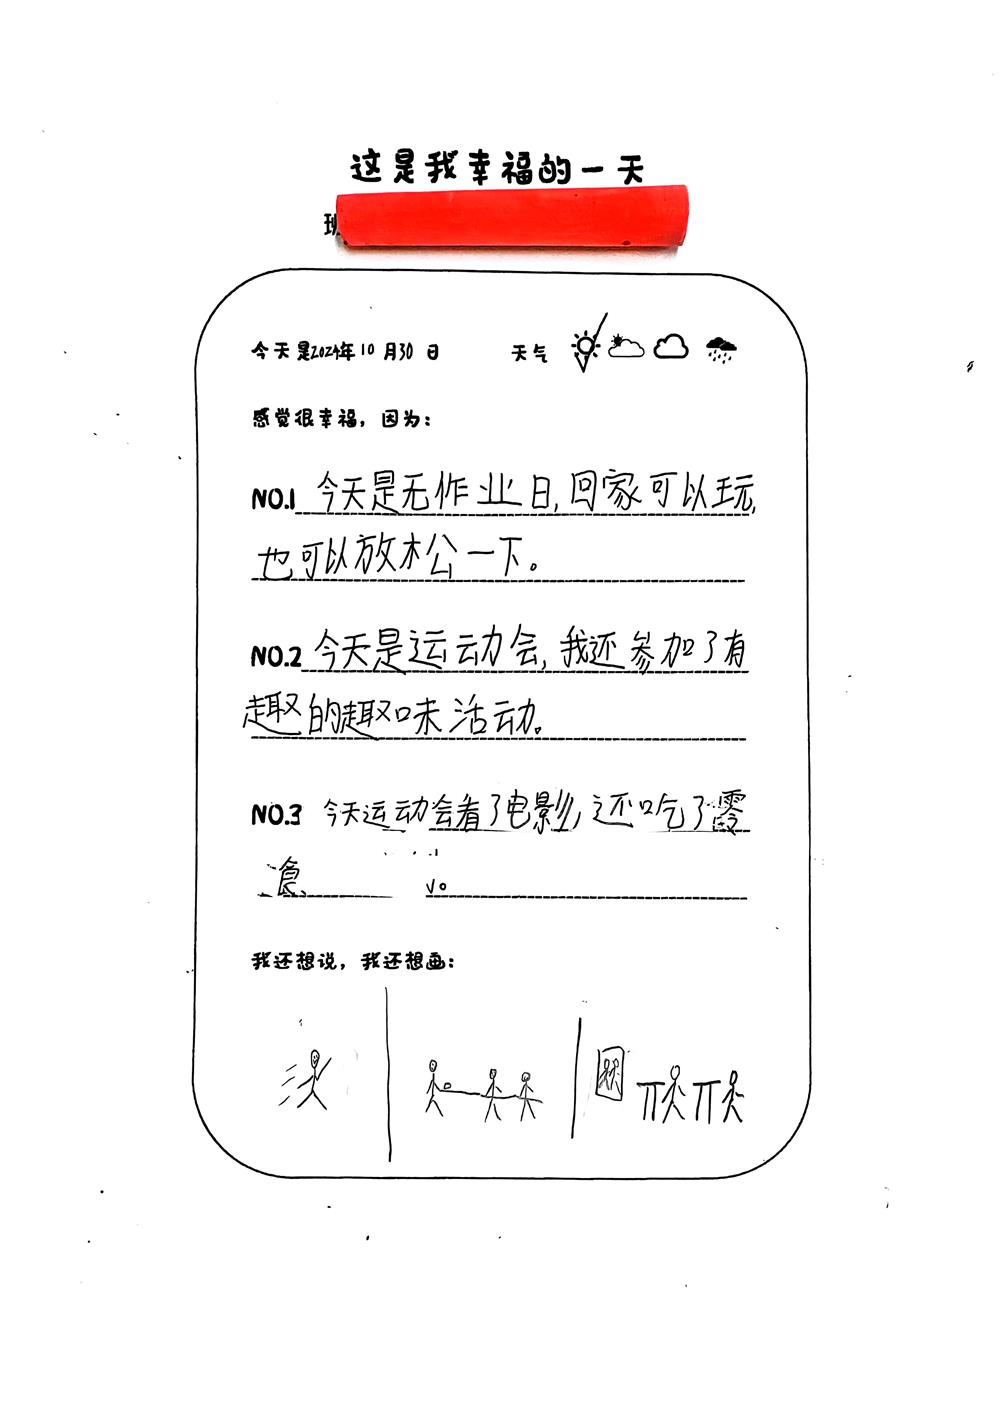 这是我幸福的一天
班
今天是2024年10月30日 天气
感觉很幸福，因为：
NO.1 今天是无作业日,回家可以玩,
也可以放松公一下。
NO.2 今天是运动会,我还参加了有
趣的趣味活动。
NO.3 今天运动会看了电影,还吃了零
食
我还想说，我还想画：